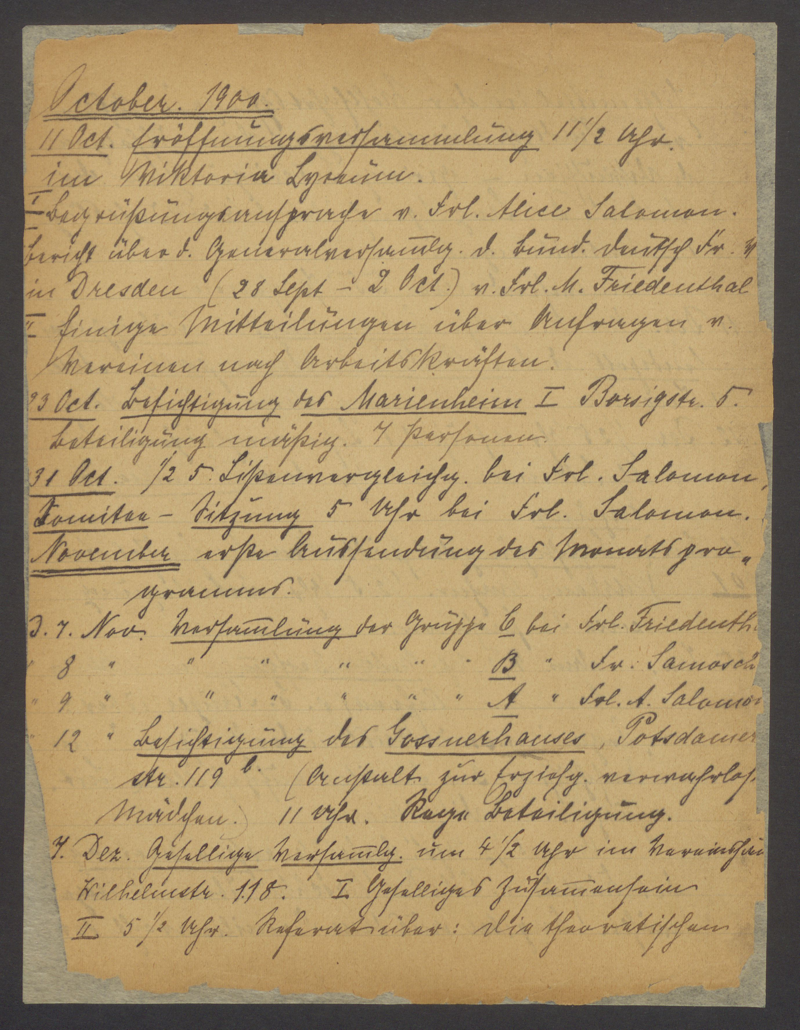 October. 1900.
11 Oct. Eröffnungsversammlung 11 1/2 Uhr.
im Viktoria Lyceum.
I Begrüßungsansprache v. Frl. Alice Salomon.
Bericht über d. Generalversamlg. d. Bund. deutsch Fr. V
in Dresden (28 Sept - 2 Oct.) v. Frl. M. Friedenthal
II Einige Mitteilungen über Anfragen v.
Vereinen nach Arbeitskräften.
23 Oct. Besichtigung des Marienheim I Borsigstr. 5.
Beteiligung mäßig. 7 Personen.
31 Oct. 1/2 5. Listenvergleichg. bei Frl. Salomon,
Komitee - Sitzung 5 Uhr bei Frl. Salomon.
November erste Aussendung des Monatspro„
gramms.
D. 7. Nov. Versamlung der Gruppe C bei Frl. Friedenth.
" 8 " " " " " " B " Fr. Samosch
" 9 " " " " " " A " Frl. A. Salomon
" 12 " Besichtigung des Gossnerhauses, Potsdamer
str. 119 b. (Anstalt zur Erziehg. verwahrlos.
Mädchen.) 11 Uhr. Rege Beteiligung.
7. Dez. Gesellige Versamlg. um 4 1/2 Uhr im Vereinshau
Wilhelmstr. 118. I Geselliges Zusamensein
II 5 1/2 Uhr. Referat über: Die theoretischen